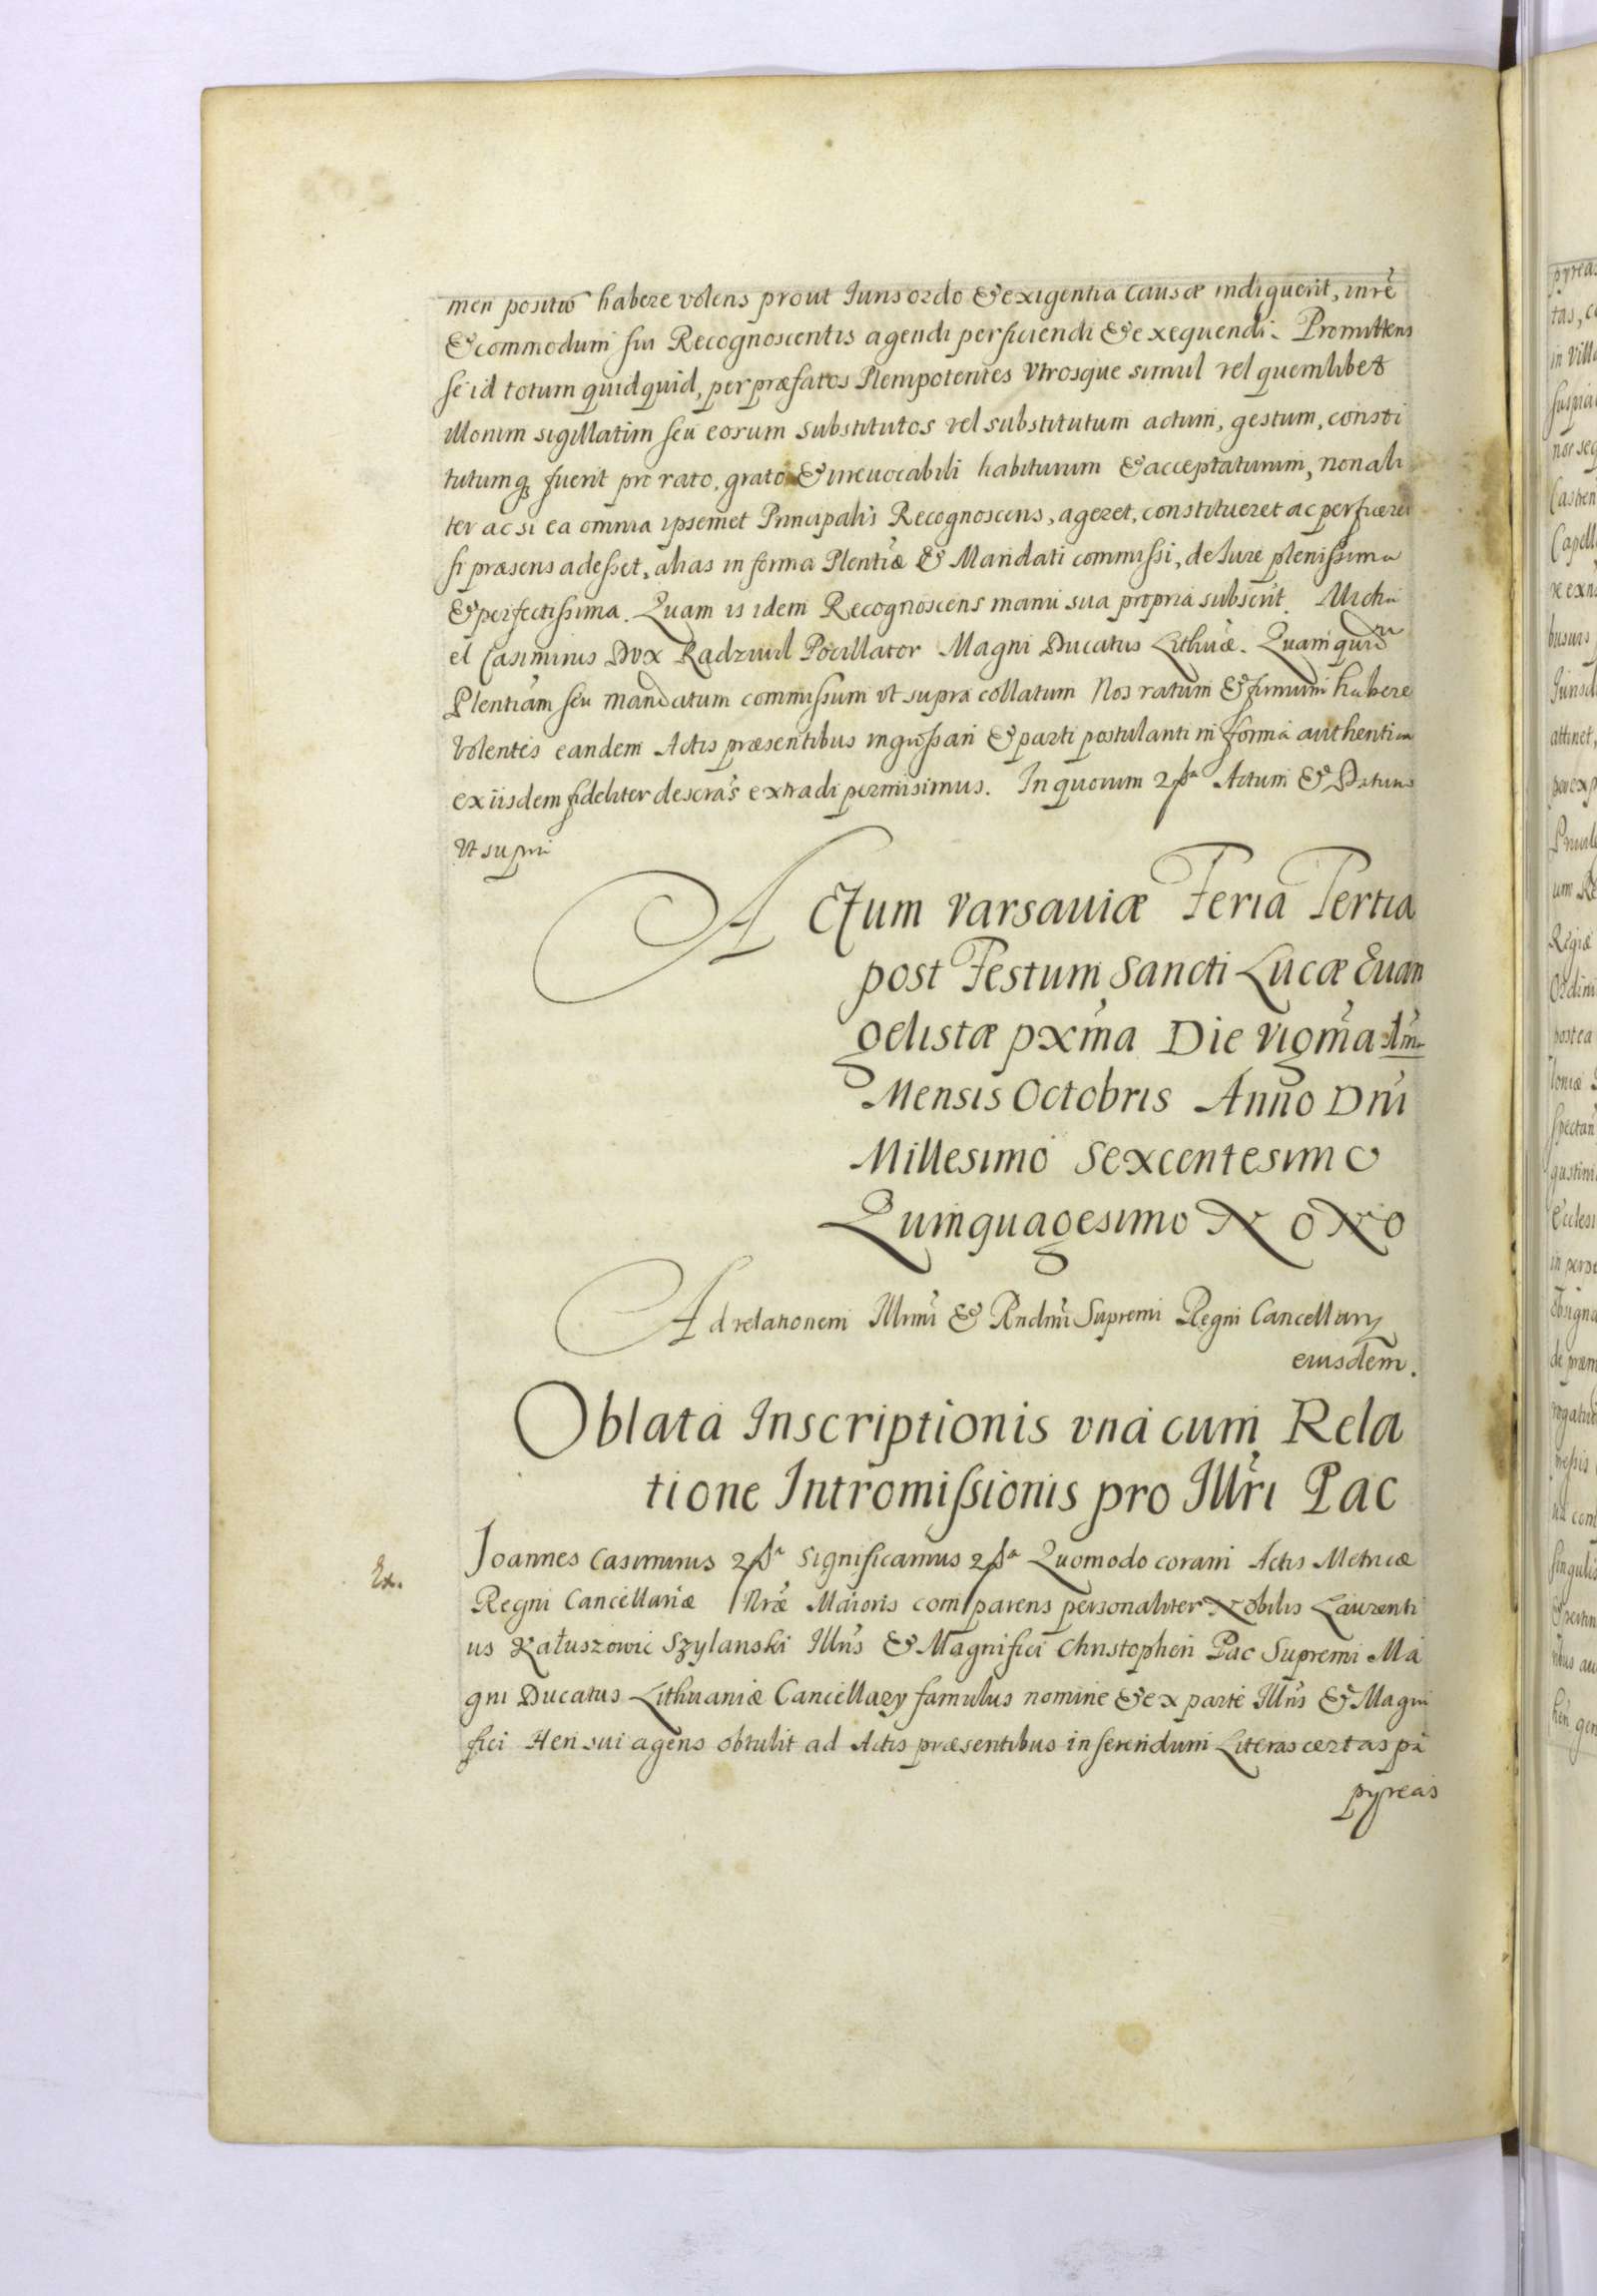 men positio habere volens prout Juris ordo & exigentia causæ indiguerit, in rē
& commodum sui Recognoscentis agendi perficiendi & exequendi. Promittens
se id totum quidquid, per præfatos Plenipotentes Vtrosque simul vel quemlibet
illorum sigillatim seu eorum substitutos vel substitutum actum, gestum, consti
tutumq fuerit pro rato, grato & irreuocabili habiturum & acceptaturum, non ali
ter ac si ea omnia ipsemet Principalis Recognoscens, ageret, constitueret ac perficeret
si præsens adesset, alias in forma Plentiæ & Mandati commissi, de Jure plenissima
& perfectissima. Quam is idem Recognoscens manu sua propria subscrit. Micha
el Casimirus Dux Radziwil Pocillator Magni Ducatus Lithuæ. Quam quid
Plentiam seu mandatum commissum vt supra collatum Nos ratum & firmum habere
volentes eandem Actis præsentibus ingrossari & parti postulanti in forma authentica
ex iisdem fideliter descras extradi permisimus. In quorum Actum & Datum
vt supra
Actum Varsauiæ Feria Tertia
post Festum Sancti Lucæ Euan
gelistæ pxma Die vigma 1ma
Mensis Octobris Anno Dni
Millesimo Sexcentesimo
Quinquagesimo Nono
Ad relationem Illrmi & Rndmi Supremi Regni Cancellary
eiusdem.
Oblata Inscriptionis vna cum Rela
tione Intromissionis pro Illri Pac
Ex.
Joannes Casimirus Significamus Quomodo coram Actis Metricæ
Regni Cancellariæ Nræ Maioris comparens personaliter Nobilis Laurenti
us Kałuszowic Szylanski Illris & Magnifici Christopheri Pac Supremi Ma
gni Ducatus Lithuaniæ Cancellary famulus nomine & ex parte Illris & Magni
fici Heri sui agens obtulit ad Actis præsentibus inserendum Literas certas pa
pyreas